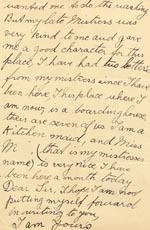 wanted me to do the washing
But my late Mistress was
very kind to me and gave
me a good character for this
place. I have had two letters
from my mistress since I have
been here, This place where I
am now is a boarding house,
their are seven of us I am a
Kitchen maid, and Miss
M (that is my mistresses
name) is very nice I have
been here a month today
Dear Sir, I hope I am not
putting myself forward
in writing to you
I am Yours